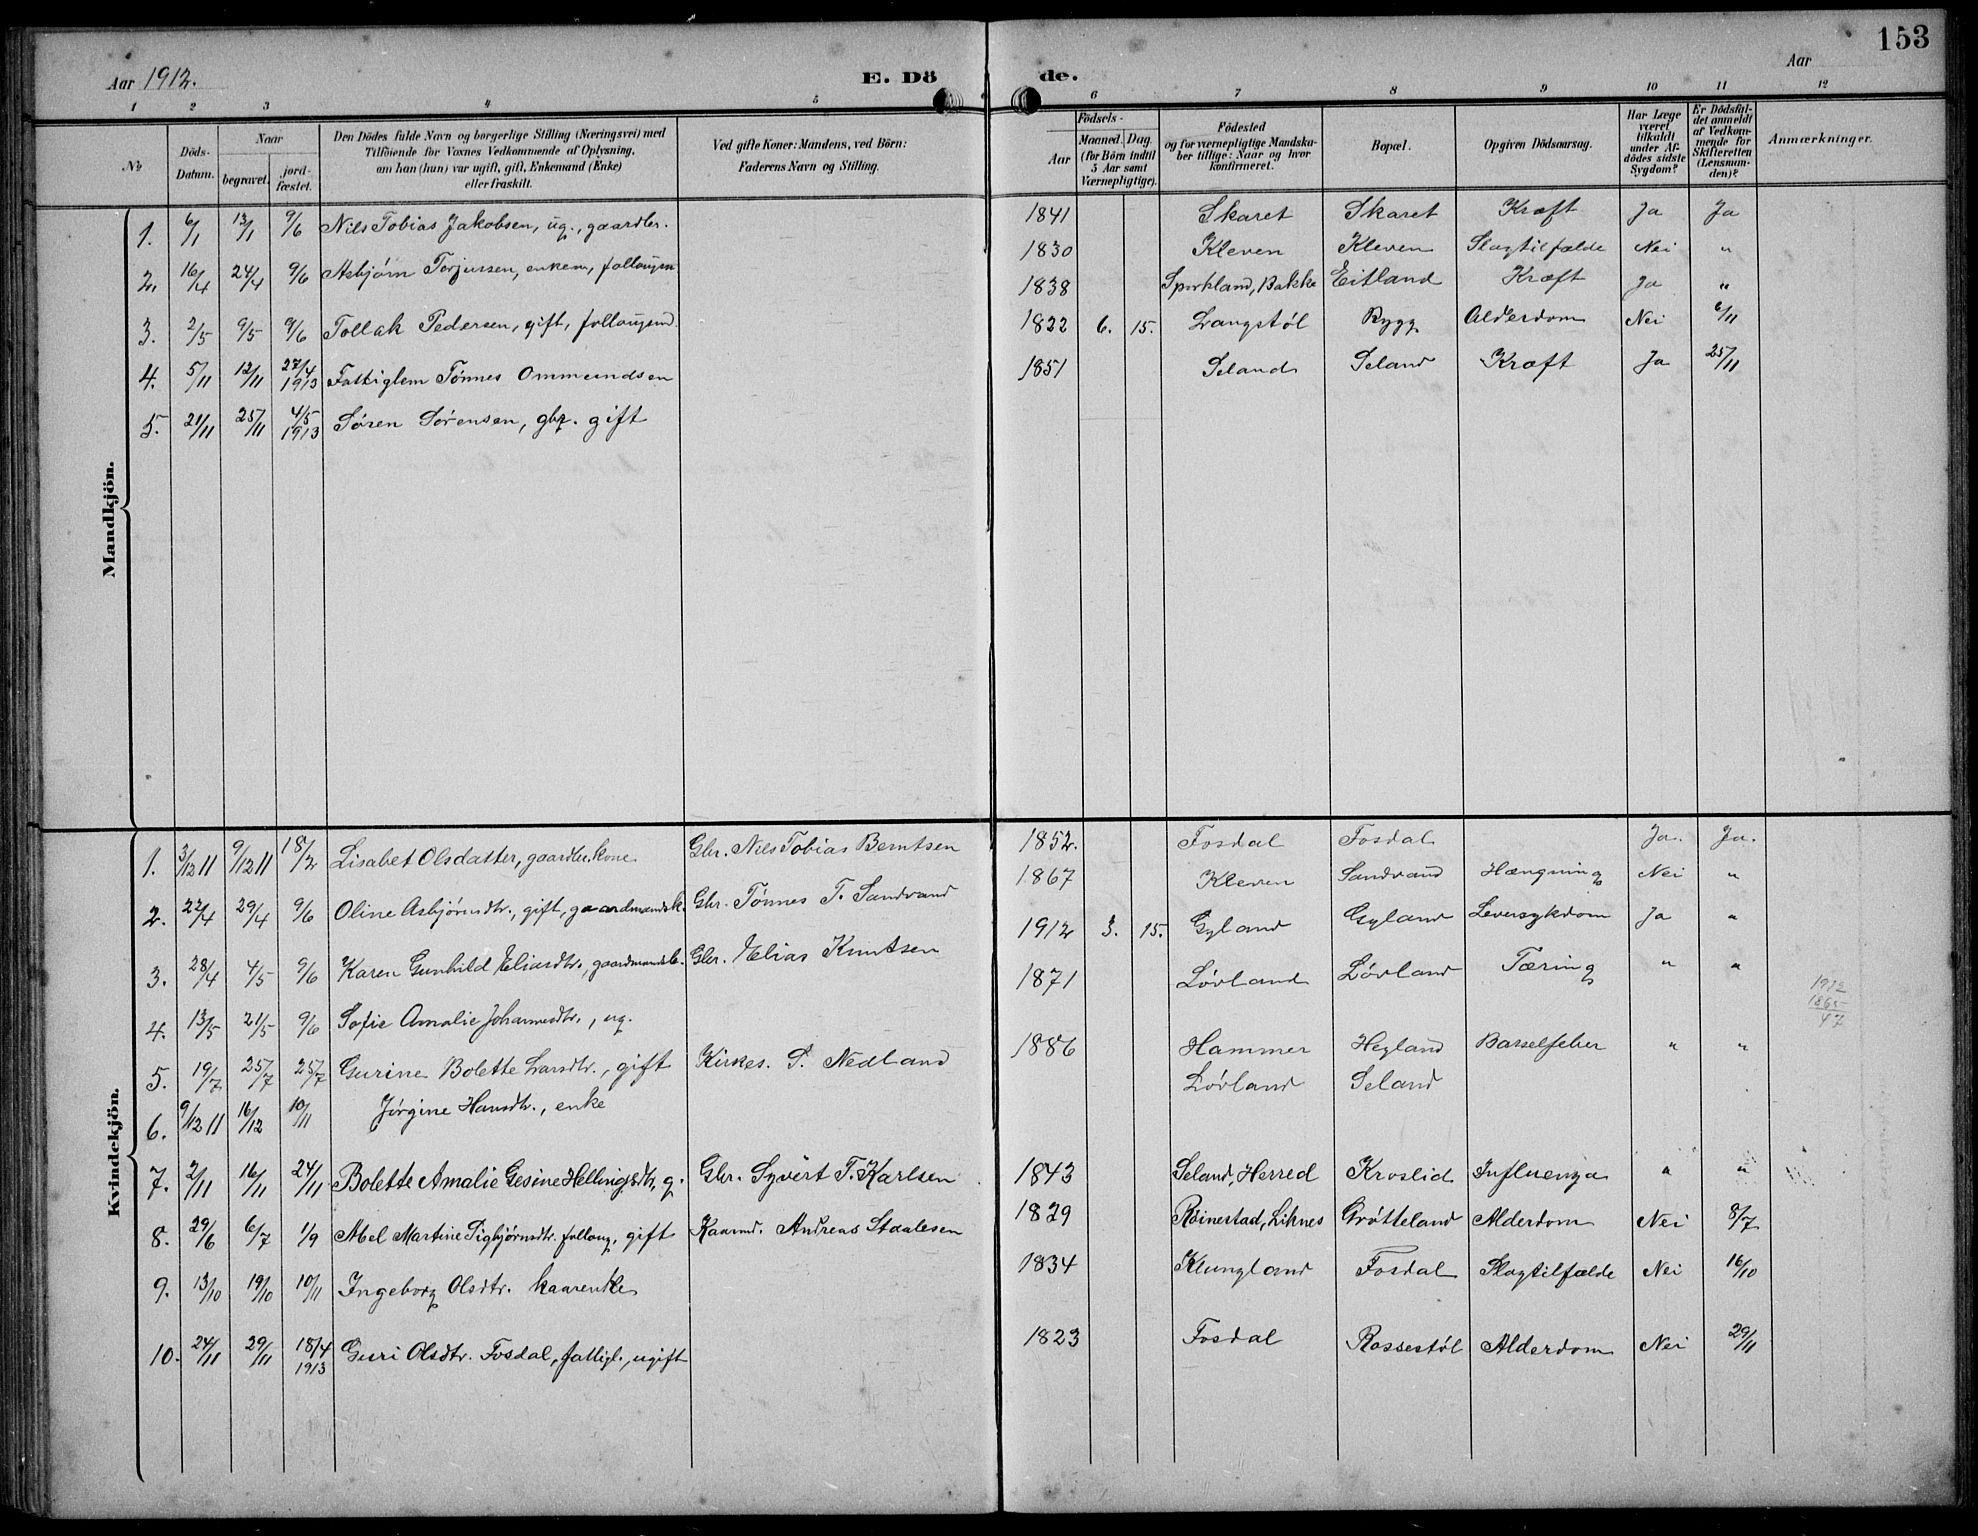 153
Aar 1912.
E. Dö de.
Aar
1 2 3 4 5 6 7 8 9 10 11 12
No
Döds-Datum.
Naar
begravet. jord-fæstet.
Den Dödes fulde Navn og borgerlige Stilling (Næringsvei) med
Tilföiende for Voxnes Vedkommende af Oplysning,
om han (hun) var ugift, gift, Enkemand (Enke)
eller fraskilt.
Ved gifte Koner: Mandens, ved Börn:
Faderens Navn og Stilling.
Födsels-
Aar Maaned. Dag.
(for Börn indtil
5 Aar samt
Værnepligtige).
Födested
og for værnepligtige Mandska-
ber tillige: Naar og hvor
konfirmeret.
Bopæl.
Opgiven Dödsaarsag.
Har Læge
været
tilkaldt
under Af-
dödes sidste
Sygdom?
Er Dödsfal-
det anmeldt
af Vedkom-
mende for
Skifteretten
(Lensman-
den)?
Anmærkninger.
Mandkjön.
1. 6/1 13/1 9/6 Nils Tobias Jakobsen, ug., gaardbr. 1841 Skaret Skaret Kræft Ja Ja
2. 16/4 24/4 9/6 Asbjørn Torjussen, enkem, follougsm 1830 Kleven Kleven Slagtilfælde Nei "
3. 2/5 9/5 9/6 Tollak Pedersen, gift, follougsmd. 1838 Spirkland, Bakke Eitland Kræft Ja "
4. 5/11 12/11 27/4 1913 Fattiglem Tønnes Ommundsen 1822 6. 15. Langstøl Rygg Alderdom Nei 6/11
5. 21/11 25/11 4/5 1913 Søren Sørensen, gbr. gift 1851 Seland Seland Kræft Ja 25/11
Kvindekjön.
1. 3/12 11 9/12 11 18/2 Lisabet Olsdatter, gaardbr.kone Gbr. Nils Tobias Berntsen 1852. Fosdal Fosdal Ja. Ja.
2. 22/4 29/4 9/6 Oline Asbjørnsdtr., gift, gaardmandsk. Gbr. Tønnes T. Sandvand 1867 Kleven Sandvand Hængning Nei "
3. 28/4 4/5 9/6 Karen Gunhild Eliasdtr., gaardmandsb. Gbr. Elias Knutsen 1912 3. 15. Gyland Gyland Leversykdom Ja "
4. 13/5 21/5 9/6 Sofie Amalie Johannesdtr., ug. 1871 Løvland Løvland Tæring " "
1912
1865
47
5. 19/7 25/7 25/7 Gurine Bolette Larsdtr., gift Kirkes. S. Nedland 1886 Hammer Hegland Barselfeber " "
6. 9/12 11 16/12 10/11 Jørgine Hansdtr., enke Løvland Seland
7. 2/11 16/11 24/11 Bolette Amalie Gesine Hellingsdtr, g. Gbr. Syvert T. Karlsen 1843 Seland, Herred Kroslid Influenza " "
8. 29/6 6/7 1/9 Abel Martine Sigbjørnsdtr. folloug, gift Kaarmd. Andreas Staalesen 1829 Røinestad, Liknes Grøtteland Alderdom Nei 8/7
9. 13/10 19/10 10/11 Ingeborg Olsdtr. kaarenke 1834 Klungland Fosdal Slagtilfælde Nei 16/10
10. 24/11 29/11 18/4 1913 Guri Olsdtr. Fosdal, fattigl., ugift 1823 Fosdal Rossestøl Alderdom Nei 29/11